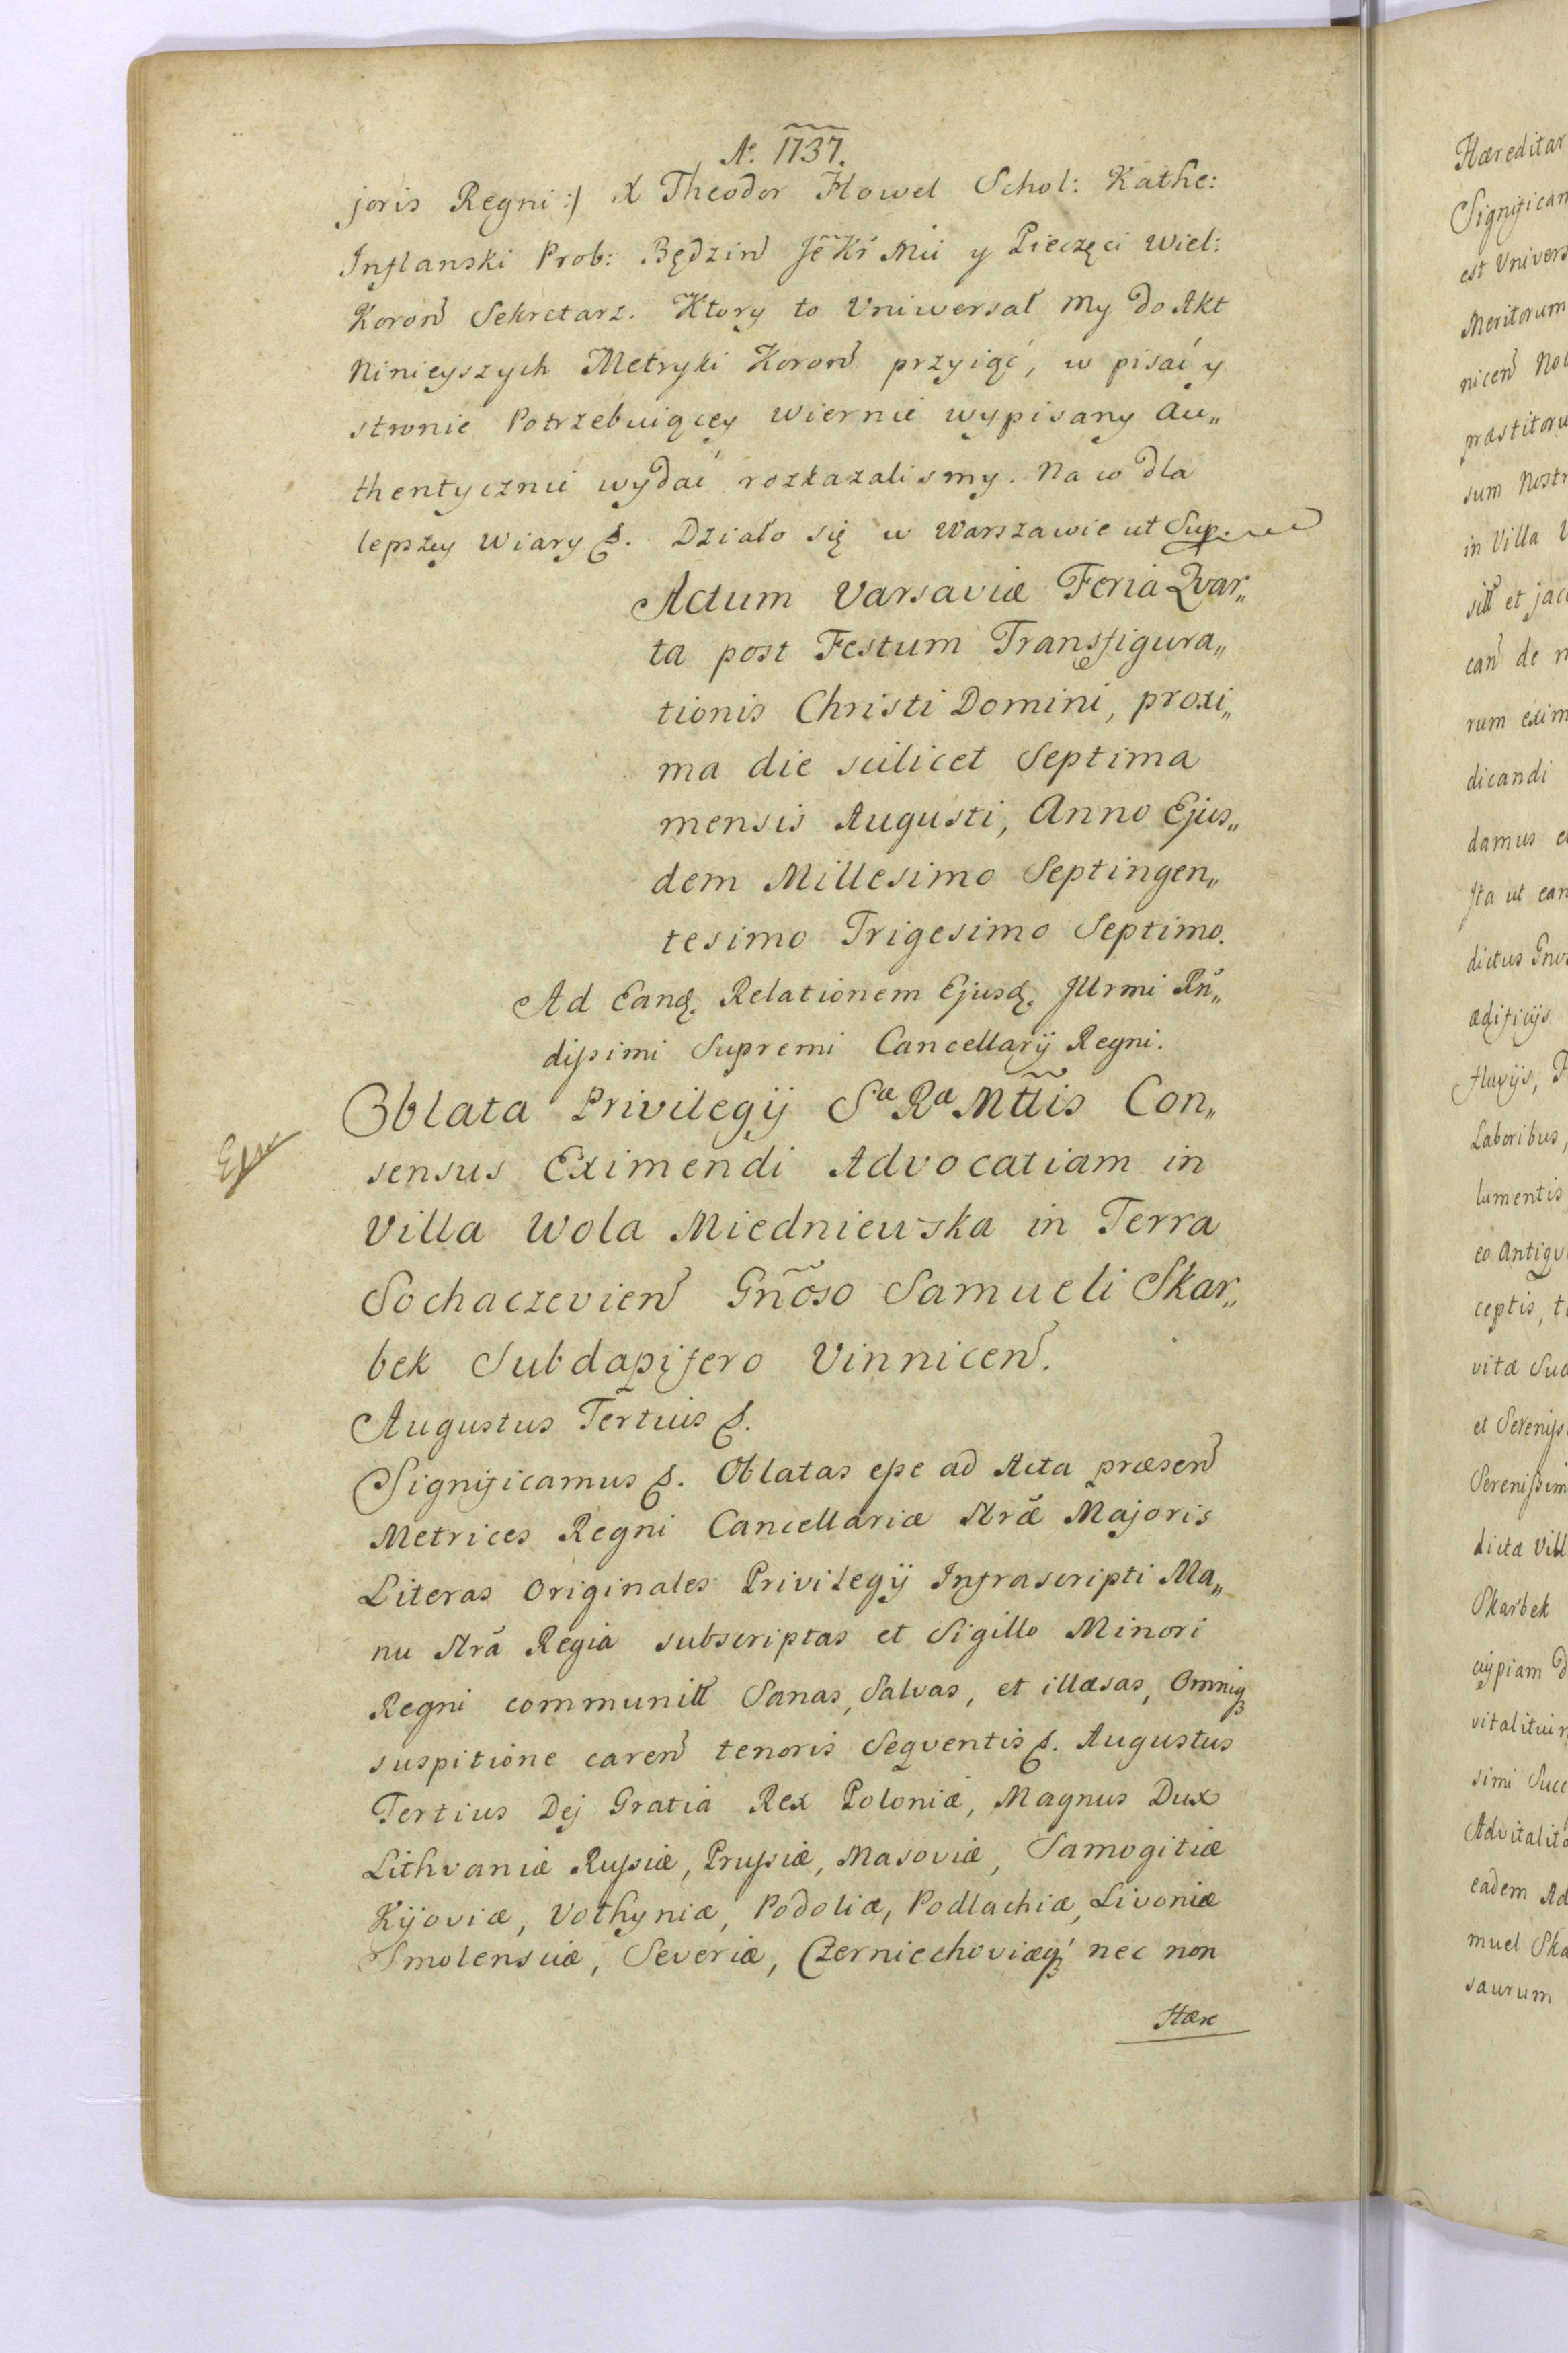 Aº. 1737.
joris Regni :/ X Theodor Howel Schol: Kathe:
Inflanski Prob: Będzin JẽKŕ Mći y Pieczęci Wiel:
Koron Sekretarz. Ktory to Uniwersał My do Akt
Ninieyszych Metryki Koron przyiąć, w pisać y
stronie Potrzebuiącey Wiernie wypisany Au„
thentycznie wydać rozkazalismy. Na co dla
lepszey Wiary &. Działo się w Warszawie ut Sup.
Actum Varsaviæ Feria Qvar„
ta post Festum Transfigura„
tionis Christi Domini, proxi„
ma die scilicet Septima
mensis Augusti, Anno Ejus„
dem Millesimo Septingen„
tesimo Trigesimo Septimo.
Ad Eandq. Relationem Ejusdq. Jllrmi Rñ„
dissimi Supremi Cancellarij Regni.
Oblata Privilegij Sæ Ræ Mttis Con„
sensus Eximendi Advocatiam in
Villa Wola Miedniewska in Terra
Sochaczevien Gñoso Samueli Skar„
bek Subdapifero Vinnicen.
Augustus Tertius &.
Significamus &. Oblatas esse ad Acta præsen
Metrices Regni Cancellariæ Nræ Majoris
Literas Originales Privilegij Infrascripti Ma„
nu Nrã Regia subscriptas et Sigillo Minori
Regni communitt Sanas, Salvas, et illæsas, Omniq
suspitione caren tenoris Seqventis &. Augustus
Tertius Dej Gratia Rex Poloniæ, Magnus Dux
Lithvaniæ Russiæ, Prussiæ, Masoviæ, Samogitiæ
Kijoviæ, Volhyniæ, Podoliæ, Podlachiæ, Livoniæ
Smolensciæ, Severiæ, Czerniechoviæq nec non
Hære
Hæreditar
Significam
est Univers
Meritorum
nicen No
præstitoru
sum Nostr
in Villa
sitt et jac
can de
rum exim
dicandi
damus
Jta ut ean
dictus Gno
ædificijs
fluvijs,
Laboribus,
lumentis
eo Antiqv
ceptis,
vitæ Suæ
et Sereniss
Serenissim
dicta Vill
Skarbek
cujpiam
vitalitium
simi Succ
Advitalita
eadem Ad
muel Ska
saurum